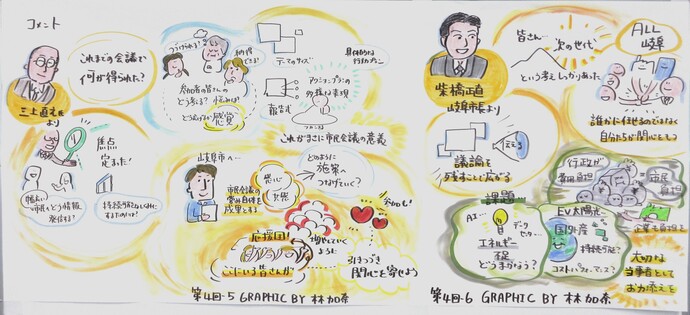 コメント
これまでの会議で
何が得られた?
三上直之氏
より
焦点
定まった!
つづけられる!
納得
できる!
参加者の皆さんの
どう考える? 悩みは?
感覚
テーマのサイズ
具体的な
行動プラン
アクションプランの
報告書
これがまさに市民会議の意義
岐阜市へ…
市民会議の
成果とする
関心
共感
どのように
施策へ
つなげていく?
応援団!
ここにいる皆さんが
増やしていく
ように
今後も!
引きつづき
関心を寄せよう
第4回-5 GRAPHIC BY 林加奈
柴橋正直
岐阜市長
より
皆さん…
次の世代
という考えしっかりあった
ALL
岐阜
誰かに任せるのではなく
自分たちが関心をもつ
議論を
残すこと・広がる
行政が
費用負担
市民
負担
企業も負担を
課題
AI…
データ
センター…
エネルギー
どうまかなう?
EV、太陽光…
国外産
持続可能?
コストパフォーマンス?
大切な
当事者として
お力添えを
第4回-6 GRAPHIC BY 林加奈